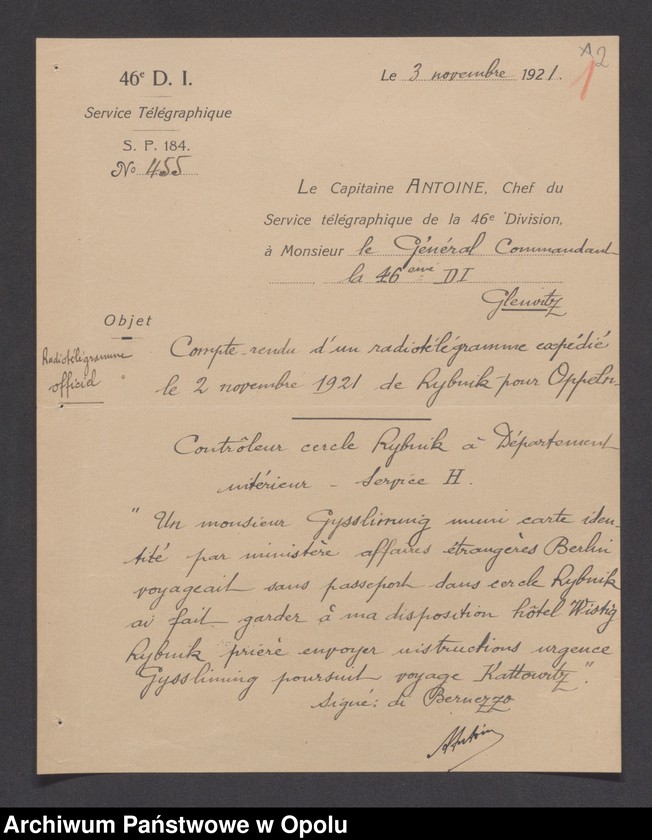 46e D. I.
Service Télégraphique
S. P. 184.
No 455
Le 3 novembre 1921.
1
2
Le Capitaine ANTOINE, Chef du
Service télégraphique de la 46e Division,
à Monsieur le Général Commandant
la 46eme DI
Gleiwitz
Objet
Radiotélégramme
officiel
Compte-rendu d'un radiotélégramme expédié
le 2 novembre 1921 de Rybnik pour Oppeln.
Contrôleur cercle Rybnik à Département
intérieur - Service H.
"Un monsieur Gysslimmig muni carte iden-
tité par ministère affaires étrangères Berlin
voyageait sans passeport dans cercle Rybnik
ai fait garder à ma disposition hôtel
Rybnik prière envoyer instructions urgence
poursuit voyage Kattowitz".
Signé: di Bernezzo
Antoine
Archiwum Państwowe w Opolu